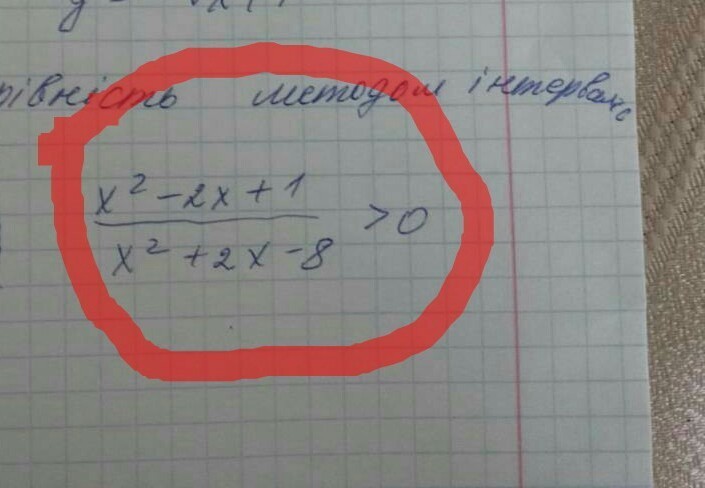 рівність методом інтервалів
x² - 2x + 1
x² + 2x - 8 > 0